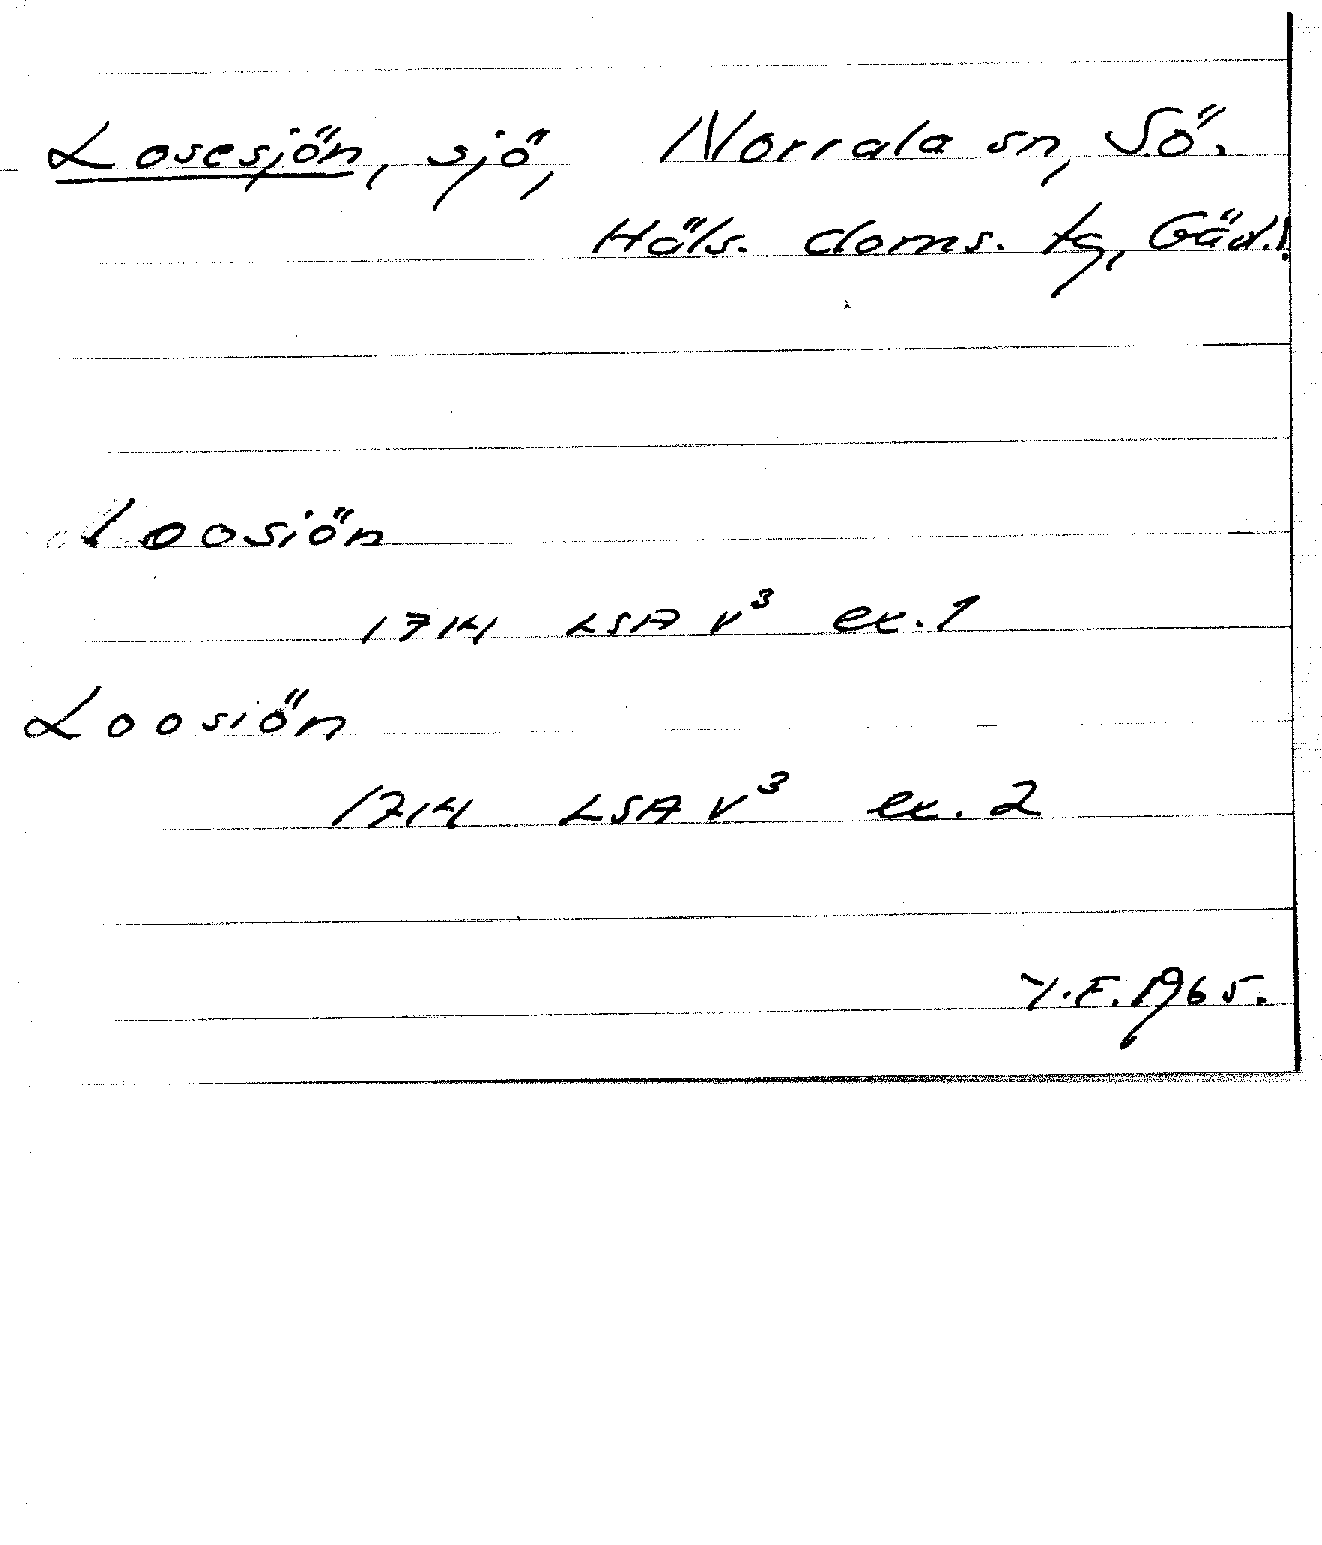 Losesjön, sjö, Norrala sn, Sö.
Häls. doms. tg, Gäd.!
Loosiön
1714 LSA V³ ex. 1
Loosiön
1714 LSA V³ ex. 2
Y.F. 1965.